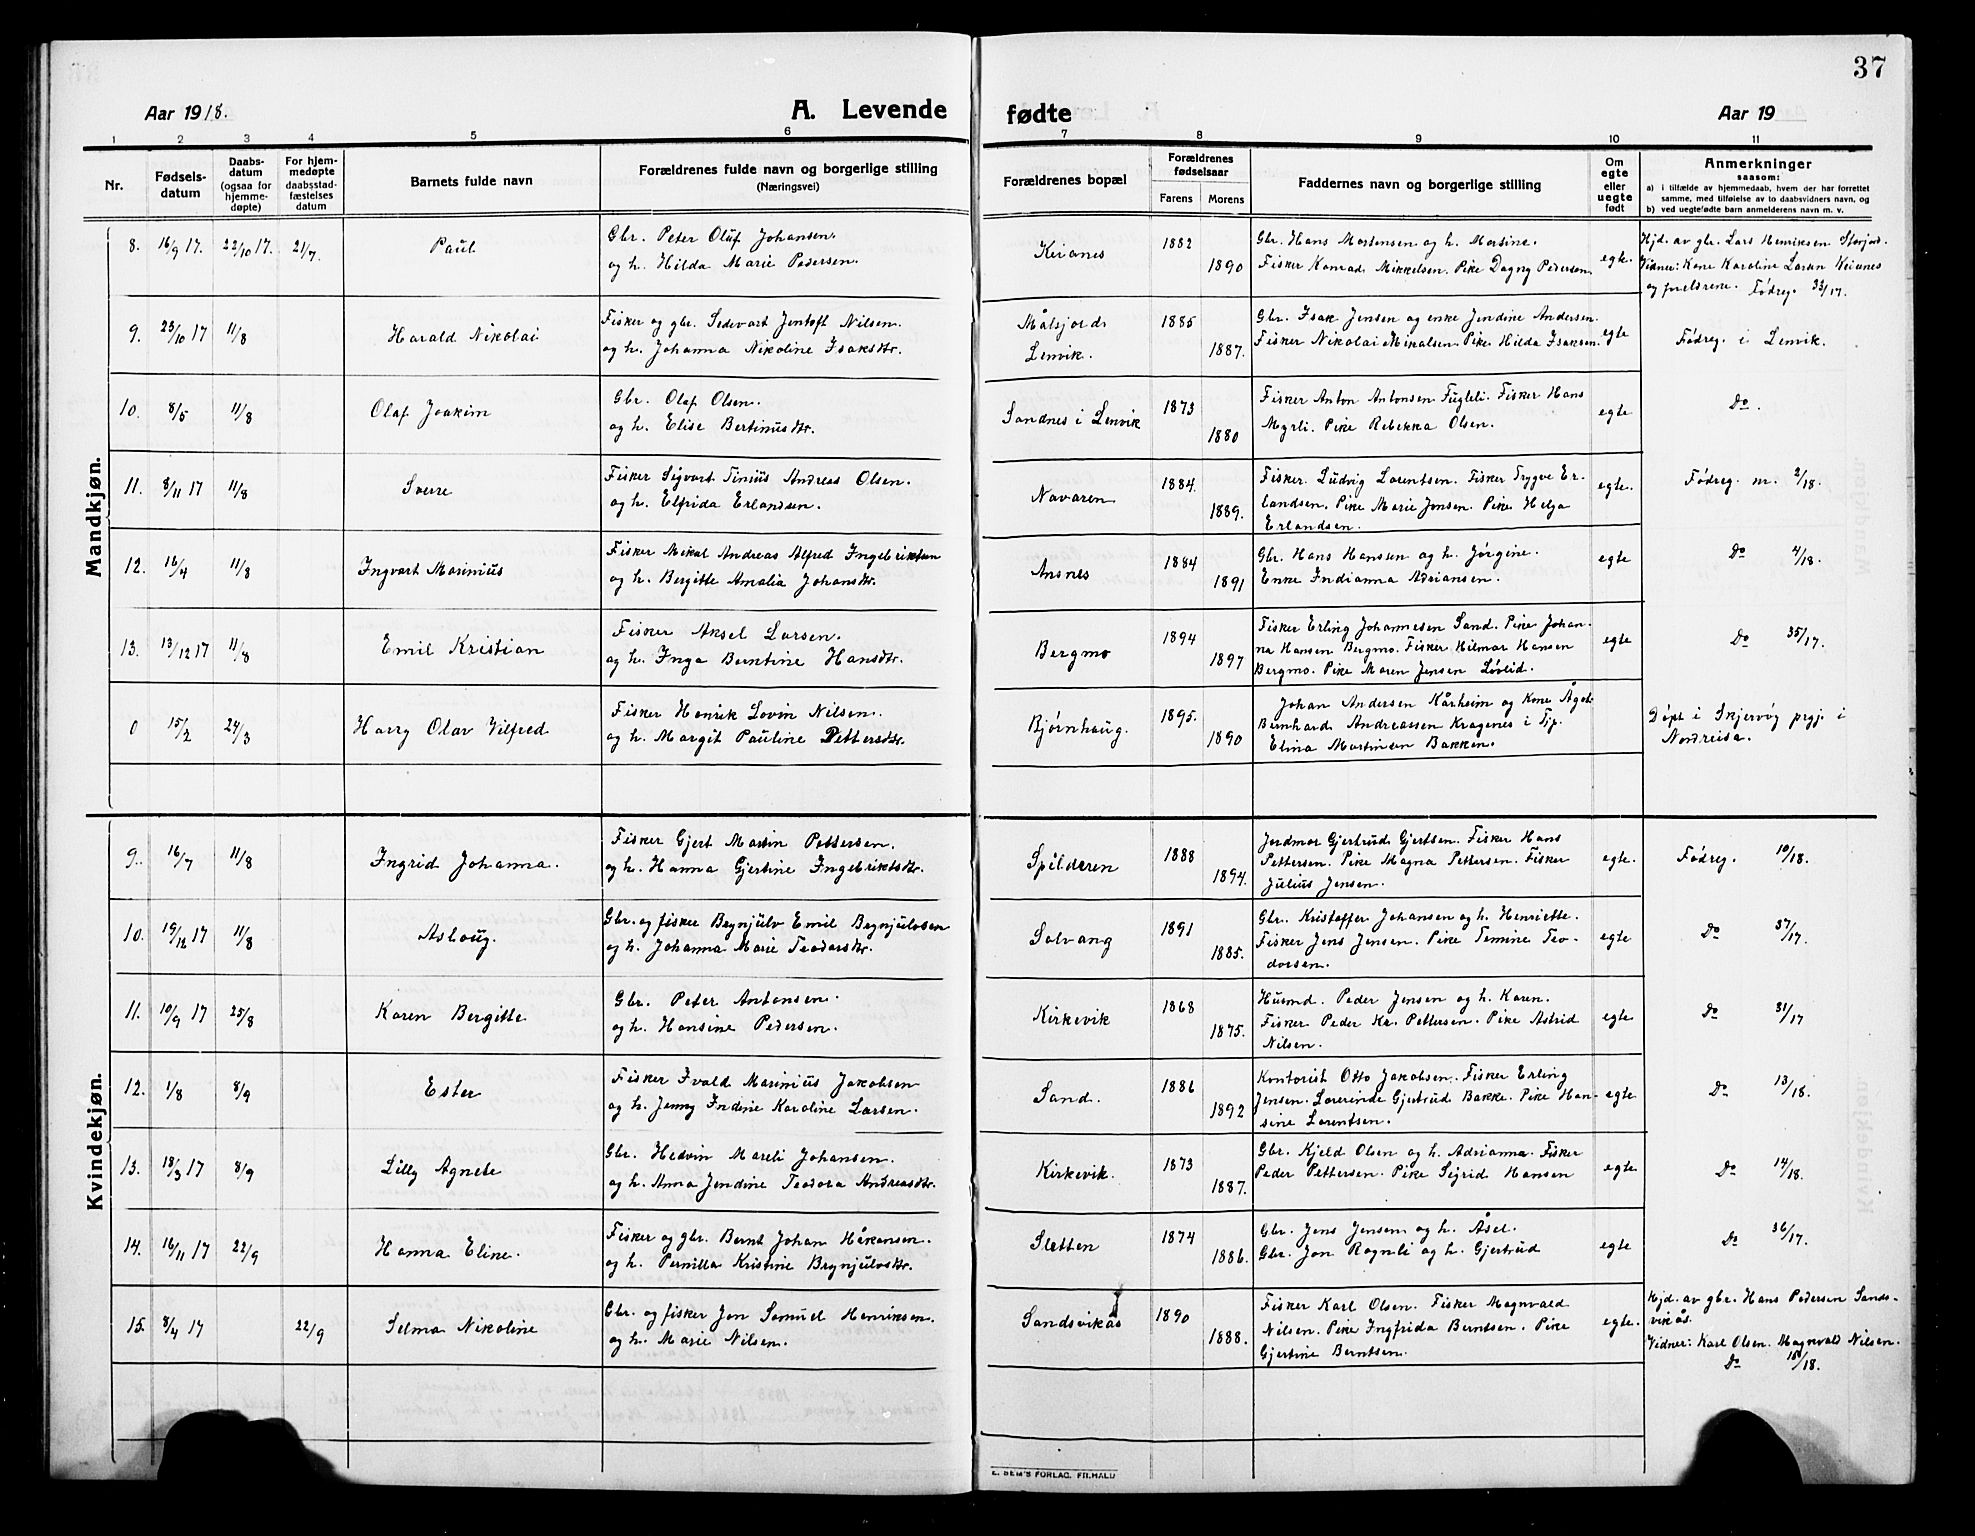 37
Aar 1918.
A. Levende
fødte
Aar 19
1 2 3 4 5 6 7 8 9 10 11
Nr.
Fødsels-
datum
Daabs-
datum
(ogsaa for
hjemme-
døpte)
For hjem-
medøpte
daabsstad-
fæstelses
datum
Barnets fulde navn
Forældrenes fulde navn og borgerlige stilling
(Næringsvei)
Forældrenes bopæl
Forældrenes
fødselsaar
Farens Morens
Faddernes navn og borgerlige stilling
Om
egte
eller
uegte
født
Anmerkninger
saasom:
a) i tilfælde av hjemmedaab, hvem der har forrettet
samme, med tilføielse av to daabsvidners navn, og
b) ved uegtefødte barn anmelderens navn m. v.
Mandkjøn.
8. 16/9 17. 22/10 17. 21/7 Paul
Gbr. Peter Oluf Johansen.
og h. Hilda Marie Pedersen.
Keianes 1882 1890
Gbr. Hans Mortensen og h. Morsine.
Fisker Konrad Mikkelsen. Pike Dagny Pedersen.
egte.
Hjd. av gbr. Lars Henriksen Storjord.
Vidner: Kone Karoline Larsen Keianes
og forældrene. Fødreg. 33/17.
9. 23/10 17 11/8 Harald Nikolai
Fisker og gbr. Sedevart Jentoft Nilsen.
og h. Johanna Nikoline Isaksdtr.
Målsjord
Lenvik. 1885 1887.
Gbr. Isak Jensen og enke Jendine Andersen.
Fisker Nikolai Mikalsen. Pike Hilda Isaksen.
egte
Fødreg. i Lenvik.
10. 8/5 11/8 Olaf Joakim
Gbr. Olaf Olsen.
og h. Elise Bertinusdtr.
Sandnes i Lenvik 1873 1880
Fisker Anton Antonsen Fugleli. Fisker Hans
Myrli. Pike Rebekka Olsen.
egte
Do.
11. 8/11 17 11/8 Sverre
Fisker Sigvart Tinius Andreas Olsen.
og h. Elfrida Erlandsen.
Navaren 1884. 1889.
Fisker Ludvig Lorentsen. Fisker Trygve Er-
landsen. Pike Marie Jensen. Pike Helga
Erlandsen.
egte.
Fødreg. nr. 2/18.
12. 16/4 11/8 Ingvart Marinius
Fisker Mikal Andreas Alfred Ingebriktsen
og h. Bergitte Amalia Johansdtr.
Ansnes 1884 1891
Gbr. Hans Hanssen og h. Jørgine.
Enke Indianna Adriansen.
egte
Do 4/18.
13. 13/12 17 11/8 Emil Kristian
Fisker Aksel Larsen.
og h. Inga Berntine Hansdtr.
Bergmo 1894 1897
Fisker Erling Johannesen Sand. Pike Johan-
na Hansen Bergmo. Fisker Hilmar Hansen
Bergmo. Pike Maren Jensen Løvlid.
egte
Do 35/17.
0 15/2 24/3 Harry Olav Vilfred
Fisker Henrik Lovin Nilsen.
og h. Margit Pauline Pettersdtr.
Bjørnhaug. 1895. 1890
Johan Andersen Kårheim og Kone Åget.
Bernhard Andreassen Kragenes i Tip.
Elina Martinsen Bakken.
Døpt i Skjervøy prgj. i
Nordreisa.
Kvindekjøn.
9. 16/7 11/8 Ingrid Johanna.
Fisker Gjert Martin Pettersen.
og h. Hanna Gjertine Ingebriktsdtr.
Spilderen 1888 1894.
Jordmor Gjertrud Gjertsen. Fisker Hans
Pettersen. Pike Magna Pettersen. Fisker
Julius Jensen.
egte.
Fødreg. 10/18.
10. 19/12 17 11/8 Aslaug.
Gbr. og fisker Brynjulv Emil Brynjulvsen
og h. Johanna Marie Teodorsdtr.
Solvang 1891 1885.
Gbr. Kristoffer Johansen og h. Henriette.
Fisker Jens Jensen. Pike Temine Teo-
dorsen.
egte
Do 37/17.
11. 10/9 17 25/8 Karen Bergitte
Gbr. Peter Antonsen.
og h. Hansine Pedersen.
Kirkevik 1868 1875.
Husmd. Peder Jensen og h. Karen.
Fisker Peder Kr. Pettersen. Pike Astrid
Nilsen.
egte
Do 31/17
12. 1/8 8/9 Ester
Fisker Ivald Marinius Jakobsen
og h. Jenny Indine Karoline Larsen.
Sand. 1886 1892
Kontorist Otto Jakobsen. Fisker Erling
Jensen. Lærerinde Gjertrud Bakke. Pike Han-
sine Lorentsen.
egte
Do 13/18.
13. 18/3 17 8/9 Lilly Agnete
Gbr. Hedvin Mareli Johansen.
og h. Anna Jendine Teodora Andreasdtr.
Kirkevik. 1873 1887.
Gbr. Kjeld Olsen og h. Adrianna. Fisker
Peder Pettersen. Pike Sigrid Hansen
egte
Do 14/18.
14. 16/11 17 22/9 Hanna Eline.
Fisker og gbr. Bernt Johan Håkonsen.
og h. Pernilla Kristine Brynjulvsdtr.
Sletten 1874 1886.
Gbr. Jens Jensen og h. Åsel.
Gbr. Jon Rognli og h. Gjertrud
egte
Do 36/17.
15. 8/4 17 22/9 Selma Nikoline
Gbr. og fisker Jon Samuel Henriksen.
og h. Marie Nilsen.
Sandsvikås 1890 1888.
Fisker Karl Olsen. Fisker Magnvald
Nilsen. Pike Ingfrida Berntsen. Pike
Gjertine Berntsen.
egte.
Hjd. av gbr. Hans Pedersen Sands-
vikås.
Vidner: Karl Olsen. Magnvald Nilsen.
Do 15/18.
E. SEM'S FORLAG. FR.HALD